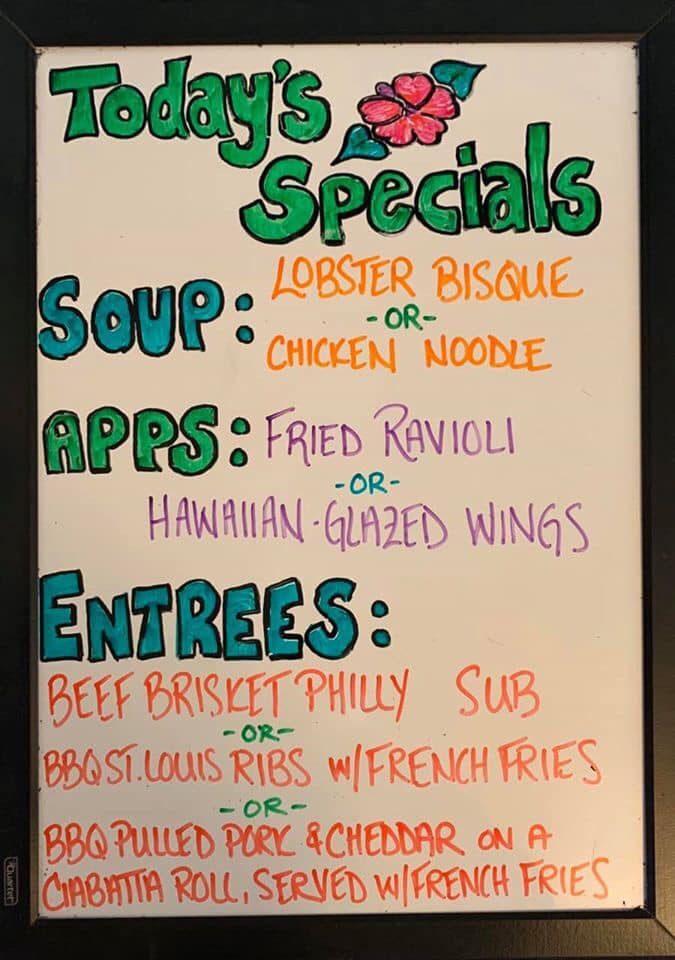 Today's
Specials
SOUP: LOBSTER BISQUE
-OR-
CHICKEN NOODLE
APPS: FRIED RAVIOLI
-OR-
HAWAIIAN-GLAZED WINGS
ENTREES:
BEEF BRISKET PHILLY SUB
-OR-
BBQ ST. LOUIS RIBS W/FRENCH FRIES
-OR-
BBQ PULLED PORK & CHEDDAR ON A
CIABATTA ROLL, SERVED W/FRENCH FRIES
Quartet